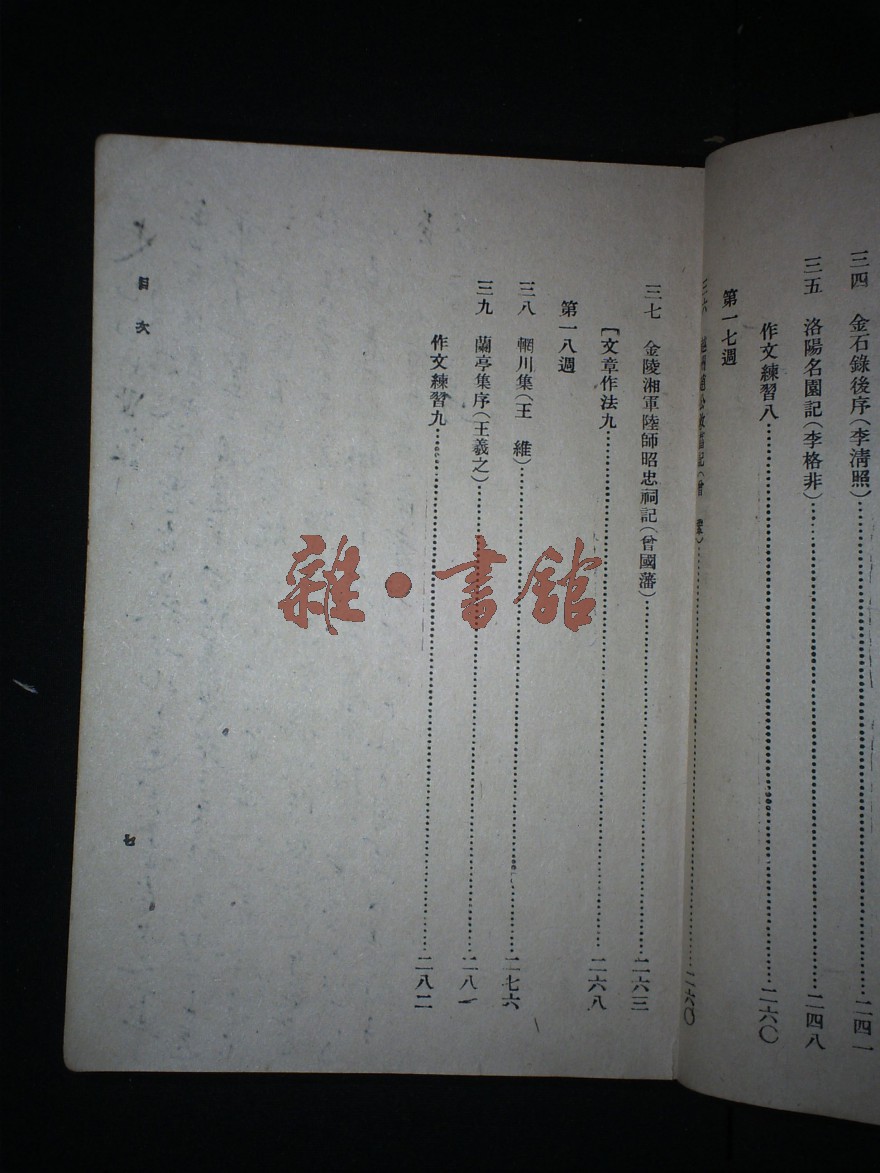 三四 金石錄後序(李清照)……二四一
三五 洛陽名園記(李格非)……二四八
作文練習八……二六〇
第一七週
三六 越州趙公救菑記(曾鞏)……二六〇
三七 金陵湘軍陸師昭忠祠記(曾國藩)……二六三
[文章作法九……二六八
第一八週
三八 輞川集(王 維)……二七六
三九 蘭亭集序(王羲之)……二八一
作文練習九……二八二
目次
七
雜·書館